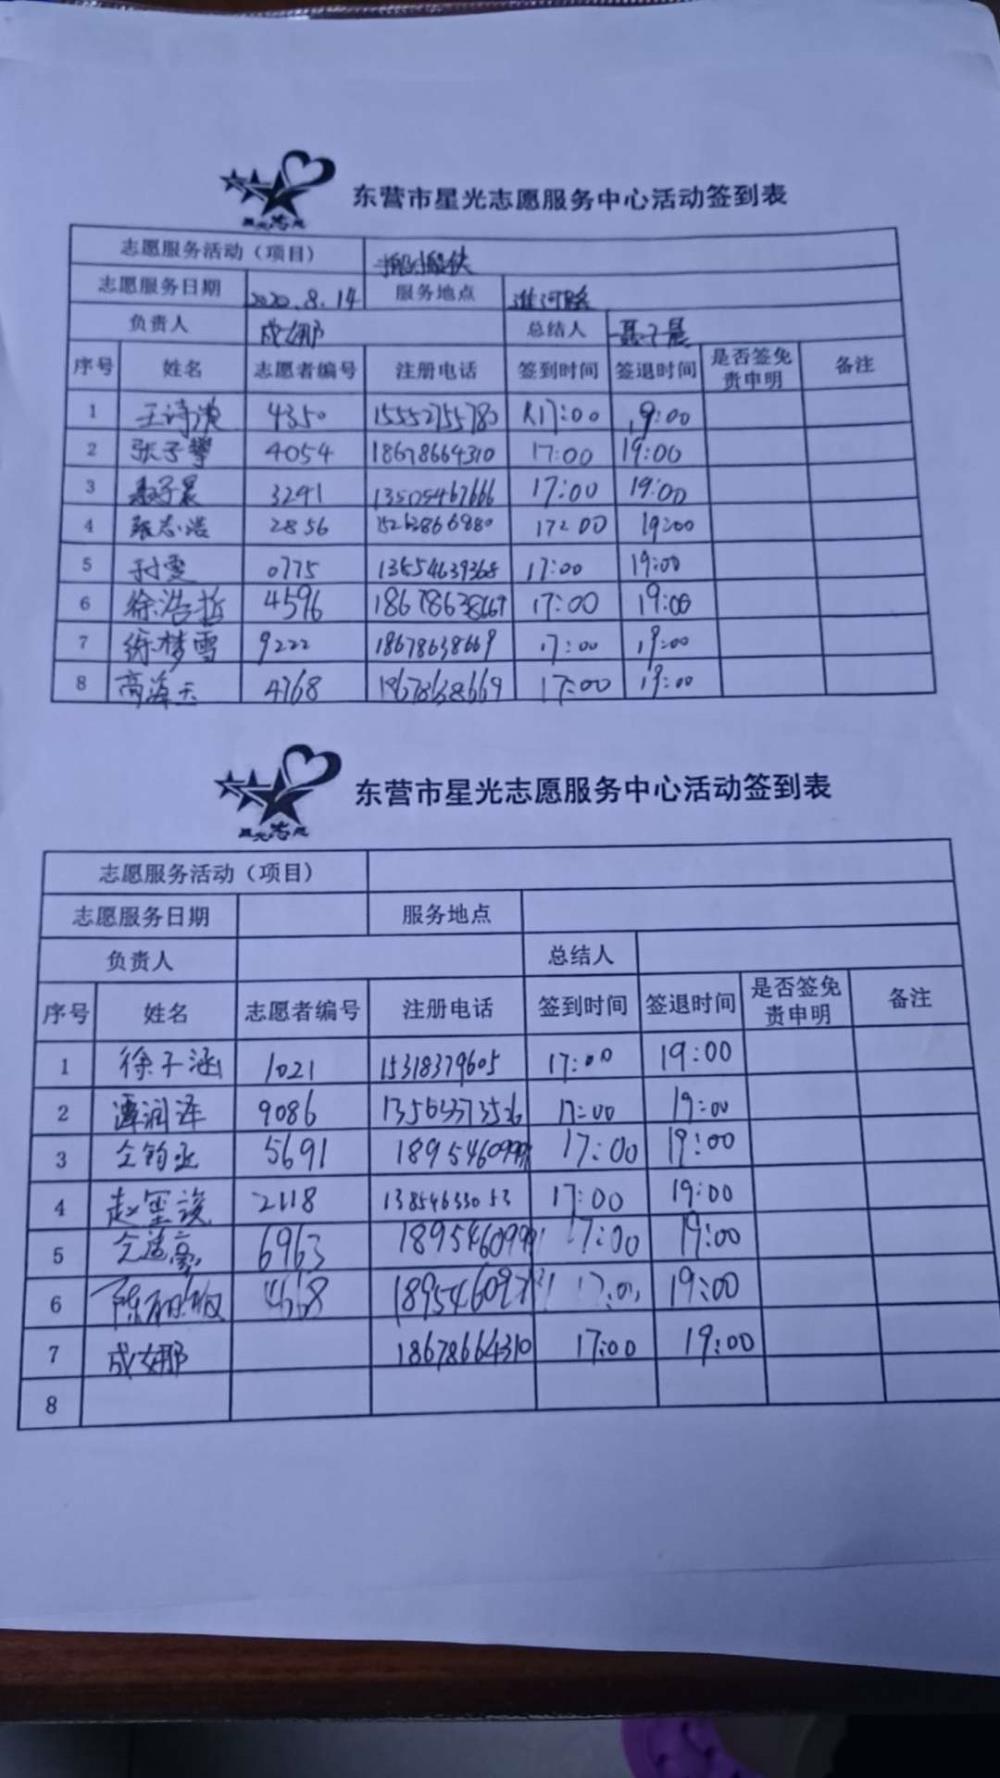 星光志愿
东营市星光志愿服务中心活动签到表
志愿服务活动（项目）
志愿服务日期 2020.8.14 服务地点 淮河路
负责人 成娜 总结人 聂子晨
序号 姓名 志愿者编号 注册电话 签到时间 签退时间 是否签免责申明 备注
1 王诗 4350 15552755780 17:00 19:00
2 张子攀 4054 18678664310 17:00 19:00
3 聂子晨 3291 13505467666 17:00 19:00
4 张志浩 2856 17:00 19:00
5 孙雯 0775 13854639368 17:00 19:00
6 徐浩哲 4596 18678638669 17:00 19:00
7 徐梦雪 9222 18678638669 17:00 19:00
8 高海玉 4768 18678638669 17:00 19:00
星光志愿
东营市星光志愿服务中心活动签到表
志愿服务活动（项目）
志愿服务日期 服务地点
负责人 总结人
序号 姓名 志愿者编号 注册电话 签到时间 签退时间 是否签免责申明 备注
1 徐子涵 1021 15318379605 17:00 19:00
2 谭润泽 9086 13561373526 17:00 19:00
3 仝钧丞 5691 17:00 19:00
4 赵 2118 13854633053 17:00 19:00
5 6963 17:00 19:00
6 陈 4668 17:00 19:00
7 成娜 18678664310 17:00 19:00
8